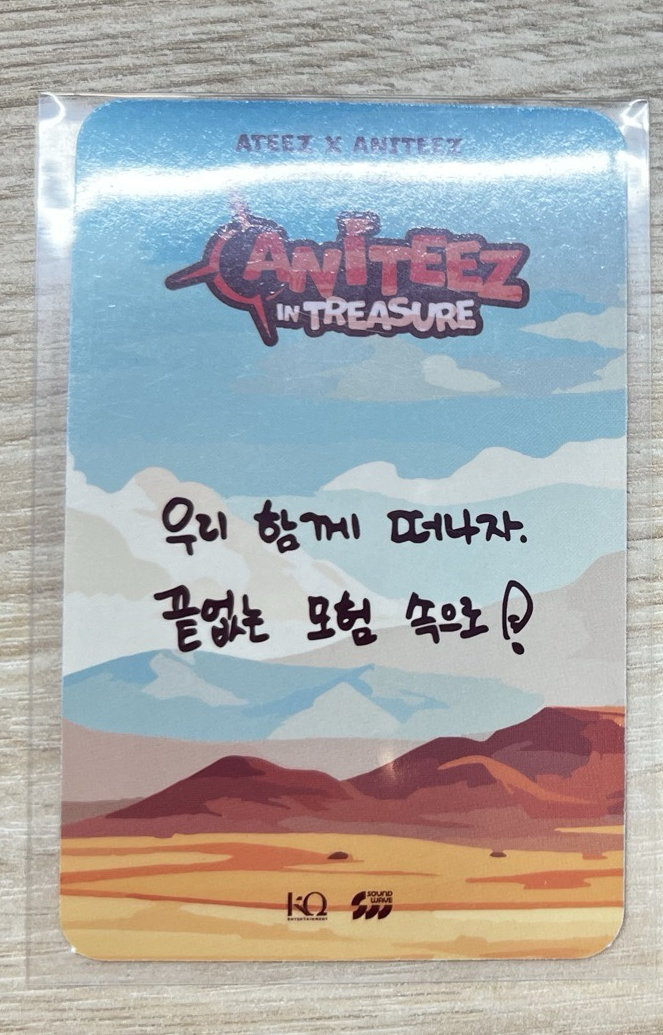 ATEEZ X ANITEEZ
ANITEEZ
IN TREASURE
우리 함께 떠나자.
끝없는 모험 속으로!
KQ
ENTERTAINMENT
SOUND
WAVE